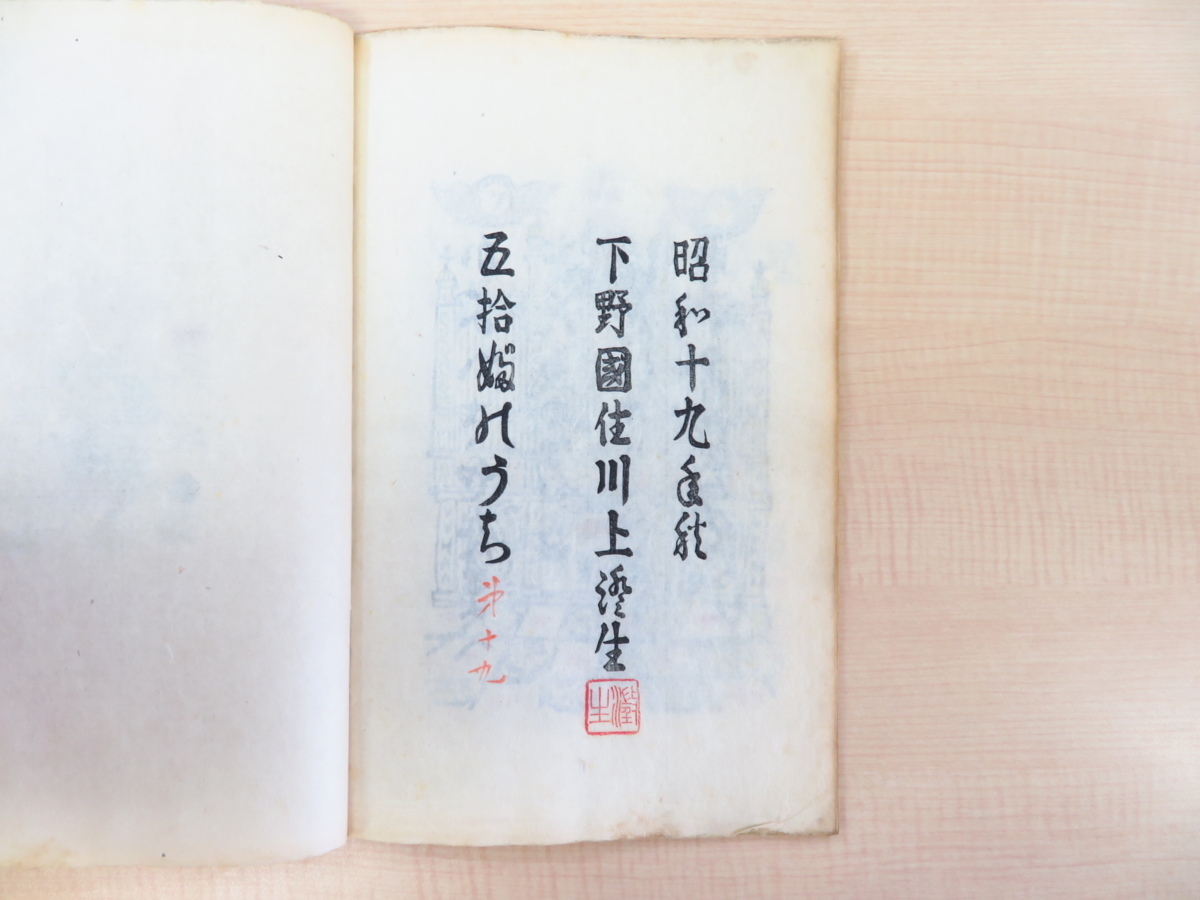 昭和十九年秋
下野國住川上澄生
澄生
五拾のうち
第十九